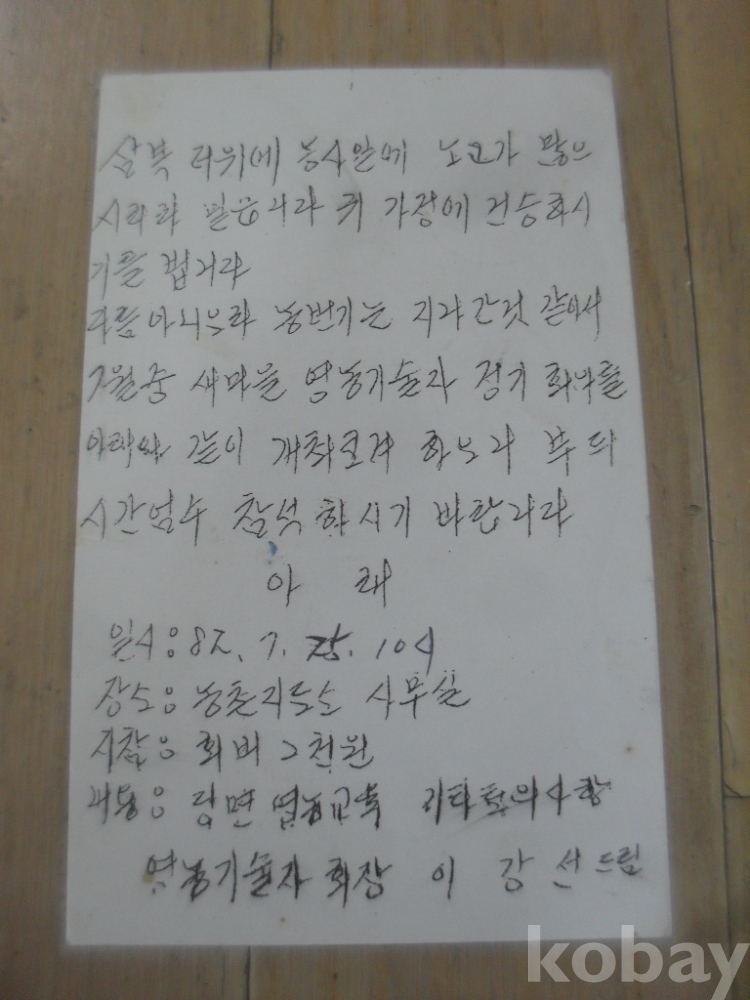 삼복 더위에 농사일에 노고가 많으
시리라 믿읍니다 귀 가정에 건승하시
기를 빕니다
다름아니오라 농번기는 지나간것 같아서
7월중 새마을 영농기술자 정기 회의를
아래와 같이 개최코저 하오니 부디
시간엄수 참석하시기 바랍니다
아 래
일시: 82. 7. 25. 10시
장소: 농촌지도소 사무실
지참: 회비 2천원
내용: 당면 영농교육 기타 협의사항
영농기술자 회장 이 강 선 드림
kobay